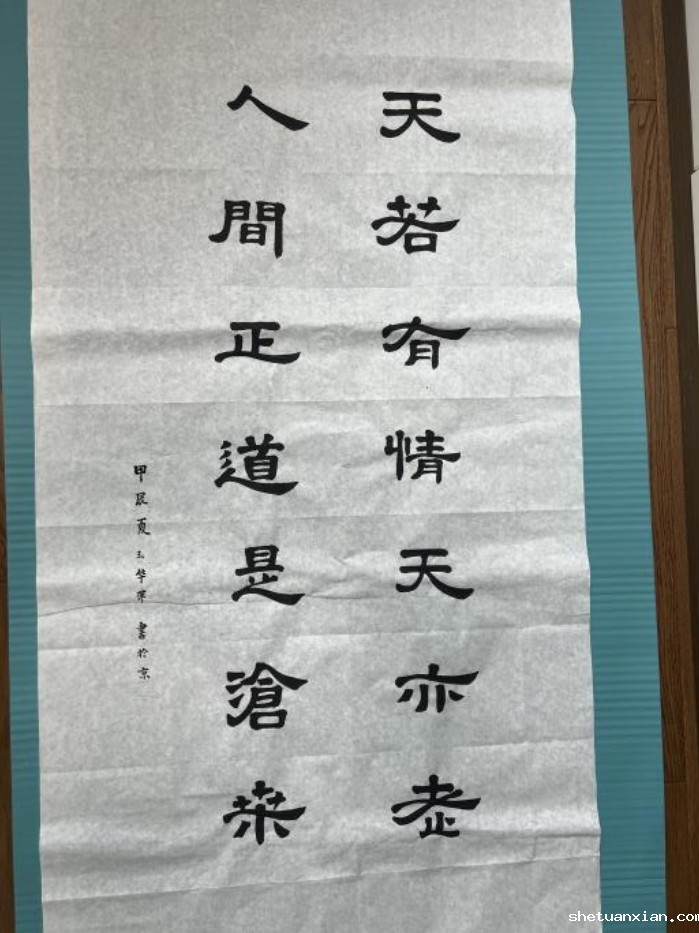 天若有情天亦老
人間正道是滄桒
甲辰夏 王华萍 書於京
shetuanxian.com